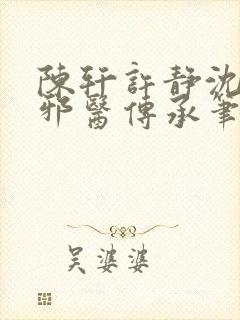 陳轩許靜沈
邪醫傳承筆
吴婆婆